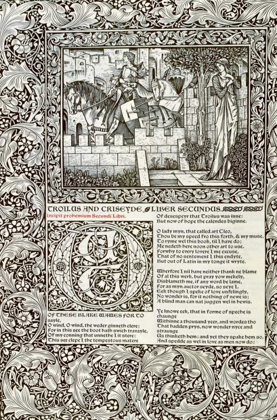 TROILUS AND CRISEYDE LIBER SECUNDUS
Incipit prohemium Secundi Libri.
OUT
OF THESE BLAKE WAWES FOR TO
sayle,
O wind, O wind, the weder ginneth clere;
For in this see the boot hath swich travayle,
Of my conning that unnethe I it stere:
This see clepe I the tempestous matere
Of desespeyr that Troilus was inne:
But now of hope the calendes biginne.
O lady myn, that called art Cleo,
Thou be my speed fro this forth, & my muse,
To ryme wel this book, til I have do;
Me nedeth here noon other art to use.
Forwhy to every lovere I me excuse,
That of no sentement I this endyte,
But out of Latin in my tonge it wryte.
Wherfore I nil have neither thank ne blame
Of al this werk, but prey yow mekely,
Disblameth me, if any word be lame,
For as myn auctor seyde, so seye I.
Eek though I speke of love unfelingly,
No wonder is, for it nothing of newe is;
A blind man can nat juggen wel in hewis.
Ye knowe eek, that in forme of speche is
chaunge
Withinne a thousand yeer, and wordes tho
That hadden prys, now wonder nyce and
straunge
Us thinketh hem; and yet they spake hem so,
And spedde as wel in love as men now do;